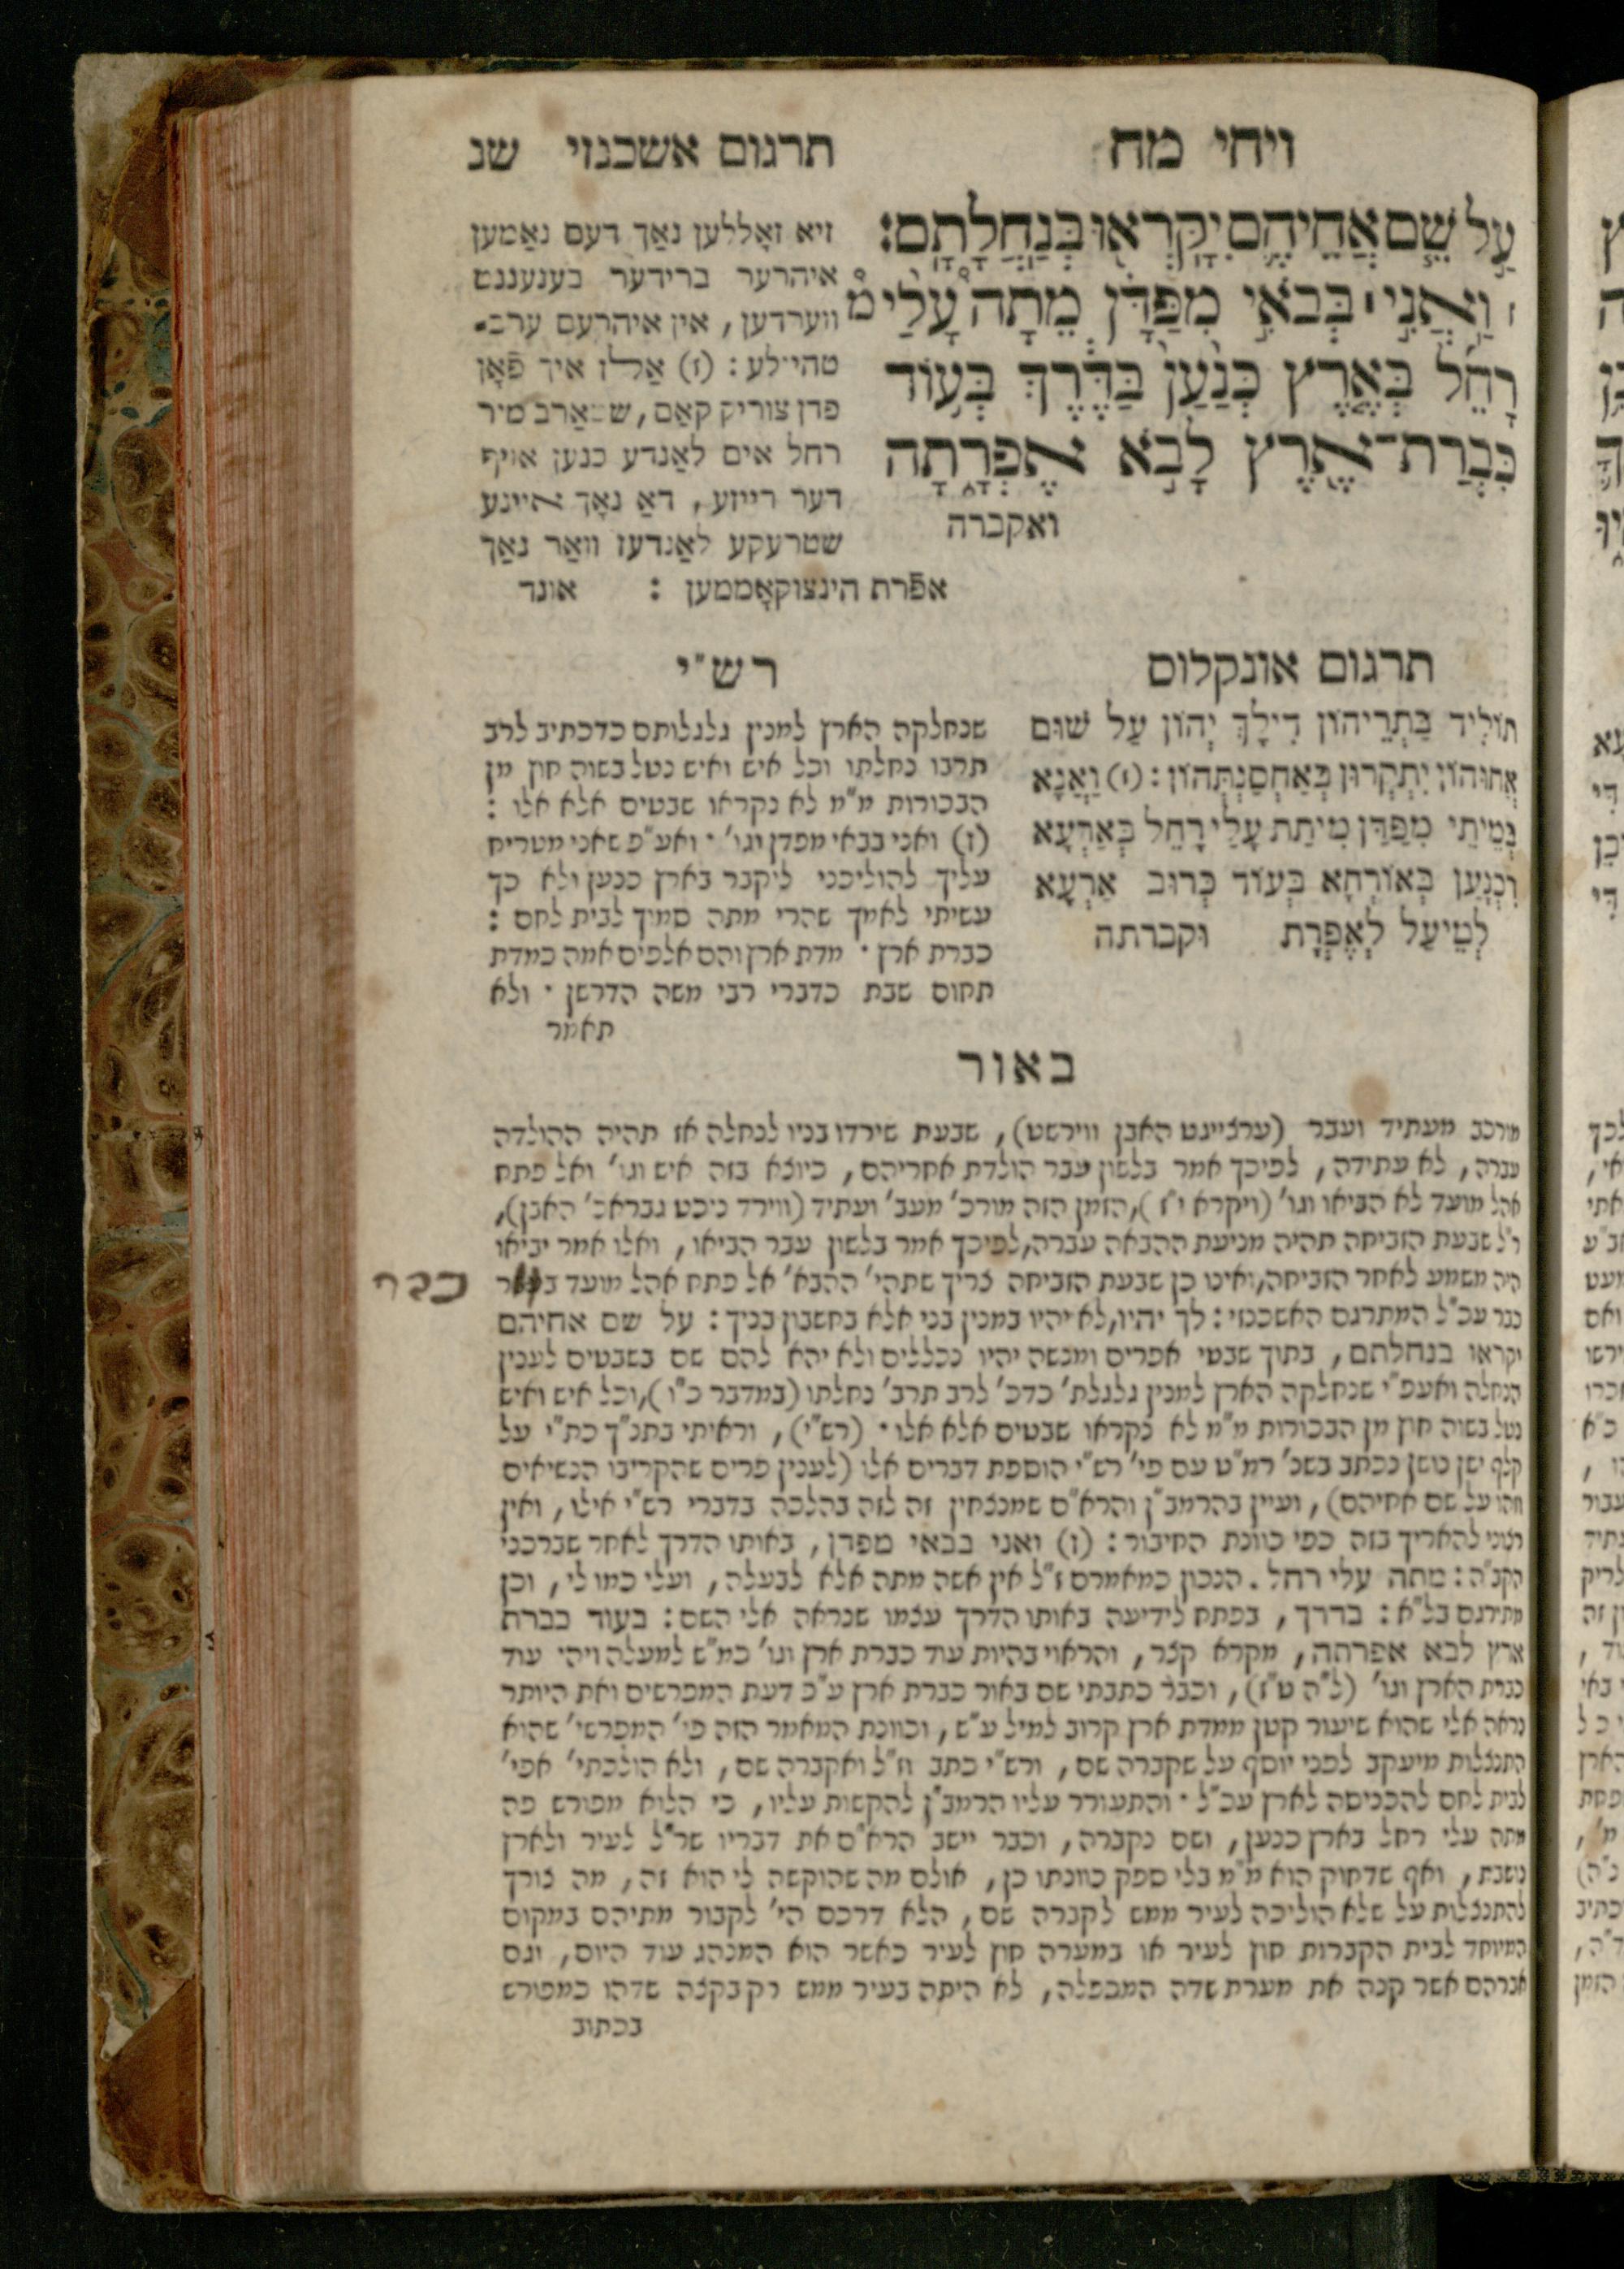 ויחי מח
תרגום אשכנזי שנ
עַ֣ל שֵׁ֧ם אֲחֵיהֶ֛ם יִקָּרְא֖וּ בְּנַחֲלָתָֽם׃
ז וַאֲנִ֣י ׀ בְּבֹאִ֣י מִפַּדָּ֗ן מֵ֩תָה֩ עָלַ֨י
רָחֵ֜ל בְּאֶ֤רֶץ כְּנַ֙עַן֙ בַּדֶּ֔רֶךְ בְּע֥וֹד
כִּבְרַת־אֶ֖רֶץ לָבֹ֣א אֶפְרָ֑תָה
ואקברה
זיא זאָללען נאַך דעם נאַמען
איהרער ברידער בענעננט
ווערדען, אין איהרעם ערב־
טהיילע: (ז) אַלז איך פֿאָן
פדן צוריק קאַם, שטאַרב מיר
רחל אים לאַנדע כנען אויף
דער רייזע, דאַ נאָך איינע
שטרעקע לאַנדעז וואַר נאַך
אפֿרת הינצוקאָממען : אונד
תרגום אונקלוס
תוֹלִיד בַּתְרֵיהוֹן דִּילָךְ יְהוֹן עַל שׁוּם
אֲחוּהוֹן יִתְקְרוּן בְּאַחְסַנְתְּהוֹן: (ז) וַאֲנָא
בְּמֵיתֵי מִפַּדַּן מִיתַת עָלַי רָחֵל בְּאַרְעָא
דִּכְנַעַן בְּאוֹרְחָא בְּעוֹד כְּרוּב אַרְעָא
לְמֵיעַל לְאֶפְרָת וקברתה
רש"י
שנחלקה הארץ למנין גלגלותם כדכתיב לרב
תרבו נחלתו וכל איש ואיש נטל בשוה חוץ מן
הבכורות מ"מ לא נקראו שבטים אלא אלו :
(ז) ואני בבאי מפדן וגו' ּ ואע"פ שאני מטריח
עליך להוליכני ליקבר בארץ כנען ולא כך
עשיתי לאמך שהרי מתה סמוך לבית לחם :
כברת ארץ ּ מדת ארץ והם אלפים אמה כמדת
תחום שבת כדברי רבי משה הדרשן ּ ולא
תאמר
באור
מורכב מעתיד ועבר (ערצייגט האבן ווירשט), שבעת שירדו בניו לנחלה אז תהיה ההולדה
עברה, לא עתידה, לפיכך אמר בלשון עבר הולדת אחריהם, כיוצא בזה איש וגו' ואל פתח
אהל מועד לא הביאו וגו' (ויקרא י"ז), הזמן הזה מורכ' מעב' ועתיד (ווירד ניכט געבראכ' האבן),
ר"ל שבעת הזביחה תהיה מניעת ההבאה עברה, לפיכך אמר בלשון עבר הביאו, ואלו אמר יביאו
היה משמע לאחר הזביחה, ואינו כן שבעת הזביחה צריך שתהי' ההבא' אל פתח אהל מועד
כבר
כבר עכ"ל המתרגם האשכנזי: לך יהיו, לא יהיו במנין בני אלא בחשבון בניך: על שם אחיהם
יקראו בנחלתם, בתוך שבטי אפרים ומנשה יהיו נכללים ולא יהא להם שם בשבטים לענין
הנחלה ואעפ"י שנחלקה הארץ למנין גלגלת' כדכ' לרב תרב' נחלתו (במדבר כ"ו), וכל איש ואיש
נטל בשוה חוץ מן הבכורות מ"מ לא נקראו שבטים אלא אלו ּ (רש"י), וראיתי בתנ"ך כת"י על
קלף ישן נושן נכתב בשנ' רמ"ט עם פי' רש"י הוספת דברים אלו (לענין פרים שהקריבו הנשיאים
וזהו על שם אחיהם), ועיין בהרמב"ן והרא"ם שמנצחין זה לזה בהלכה בדברי רש"י אילו, ואין
רצוני להאריך בזה כפי כוונת החיבור: (ז) ואני בבאי מפדן, באותו הדרך לאחר שברכני
הקב"ה: מתה עלי רחל. הנכון כמאמרם ז"ל אין אשה מתה אלא לבעלה, ועלי כמו לי, וכן
מתורגם בל"א: בדרך, בפתח לידיעה באותו הדרך עצמו שנראה אלי השם: בעוד כברת
ארץ לבא אפרתה, מקרא קצר, והראוי בהיות עוד כברת ארץ וגו' כמ"ש למעלה ויהי עוד
כברת הארץ וגו' (ל"ה ט"ז), וכבר כתבתי שם באור כברת ארץ ע"כ דעת המפרשים ואת היותר
נראה אלי שהוא שיעור קטן ממדת ארץ קרוב למיל ע"ש, וכוונת המאמר הזה פי' המפרשי' שהוא
התנצלות מיעקב לפני יוסף על שקברה שם, ורש"י כתב וז"ל ואקברה שם, ולא הולכתי' אפי'
לבית לחם להכניסה לארץ עכ"ל ּ והתעורר עליו הרמב"ן להקשות עליו, כי הלוא מפורש פה
מתה עלי רחל בארץ כנען, ושם נקברה, וכבר יישב הרא"ם את דבריו שר"ל לעיר ולארץ
נושבת, ואף שדחוק הוא מ"מ בלי ספק כוונתו כן, אולם מה שהוקשה לי הוא זה, מה צורך
להתנצלות על שלא הוליכה לעיר ממש לקברה שם, הלא דרכם הי' לקבור מתיהם במקום
המיוחד לבית הקברות חוץ לעיר או במערה חוץ לעיר כאשר הוא המנהג עוד היום, וגם
אברהם אשר קנה את מערת שדה המכפלה, לא היתה בעיר ממש רק בקצה שדהו כמפורש
בכתוב